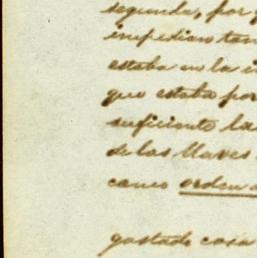 segunda, por
impedian tan
estaba en la i
que estaba por
suficiente la
de las llaves
caneo orden
gastado cosa